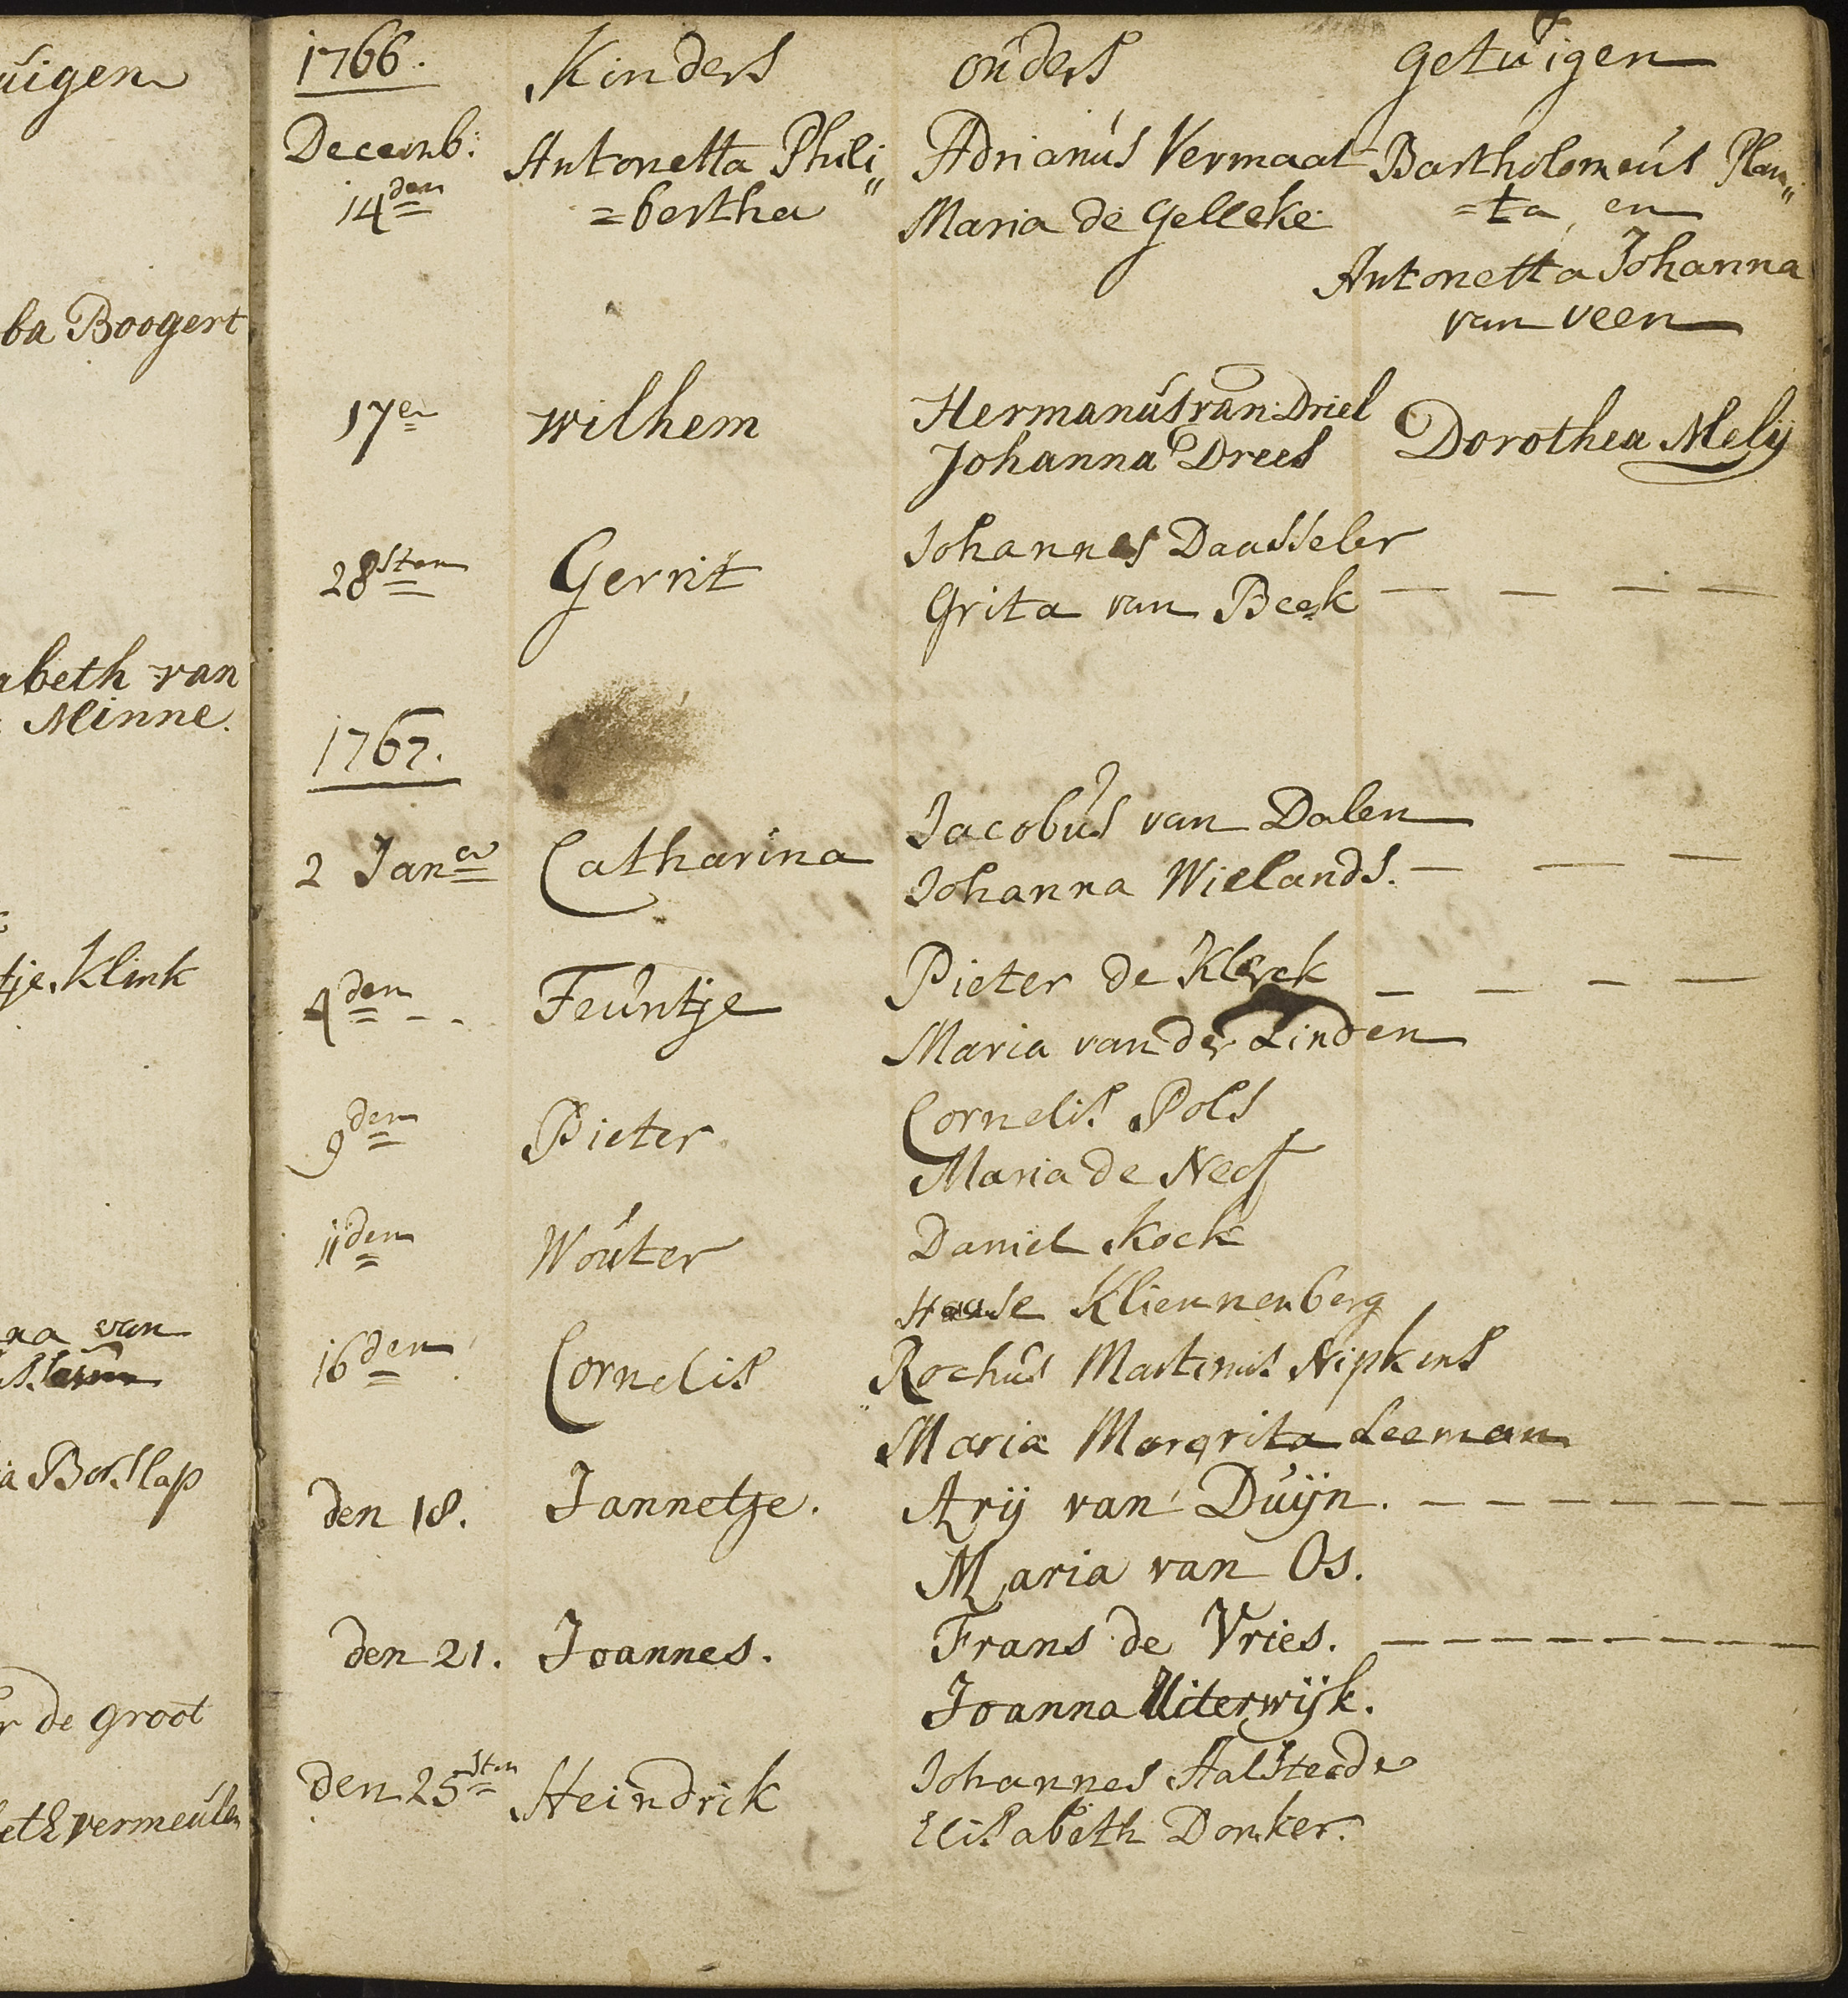 uigen
ba Boogert
abeth van
Minne.
tje Klink
na van
ia Borslap
r de groot
beth vermeulen
1766. Kinders ouders getuigen
Decemb: Antonetta Phili„ Adrianus Vermaat Bartholomeus Plan„
14den =bertha Maria de Gelleke =ta, en
Antonetta Johanna
van veen
17en wilhem Hermanus van Driel Dorothea Melij
Johanna Drees
28sten Gerrit Johannes Daasseler
Grita van Beek — — — —
1767.
2 Janr Catharina Jacobus van Dalen
Johanna Wielands. — — —
4den - - Feuntje Pieter de Klerck — — — —
Maria van der Linden
9den Pieter Cornelis Pols
Maria de Neef
11den Wouter Daniel Kock
Haasje Kliennenberg
16den Cornelis Rochus Martinus Nipkens
Maria Margrita Leeman
den 18. Jannetje. Arij van Duijn. — — — — — — — —
Maria van Os.
den 21. Joannes. Frans de Vries. — — — — — — — —
Joanna Uiterwijk.
den 25sten Heindrik Johannes Halsteede
Elisabeth Donker.